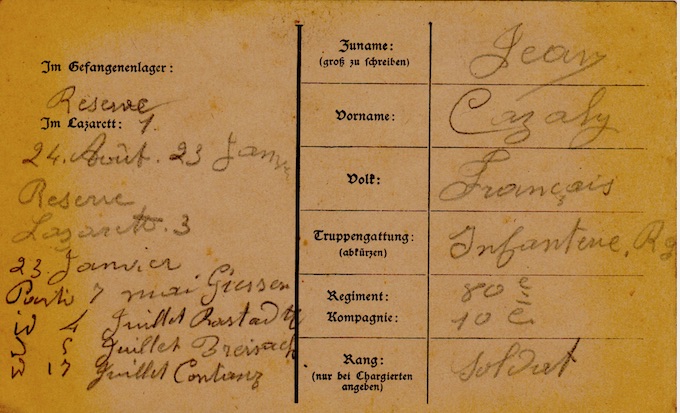 Im Gefangenenlager:
Reserve
Im Lazarett: 1
24. Août. 23 Janv
Reserve
Lazarett. 3
23 Janvier
Parti 7 mai Giessen
4 Juillet Rastadt
5 Juillet Breisach
17 Juillet Contanz
Zuname:
(groß zu schreiben)
Jean
Vorname:
Cazaly
Volk:
Français
Truppengattung:
(abkürzen)
Infanterie. Rg
Regiment:
80 e
Kompagnie:
10 e
Rang:
(nur bei Chargierten
angeben)
Soldat